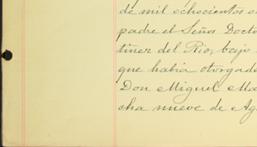 de mil ochocientos
padre el Señor Doct
tinez del Rio, bajo
que habia otorgad
Don Miguel Ma
cha nueve de Ag